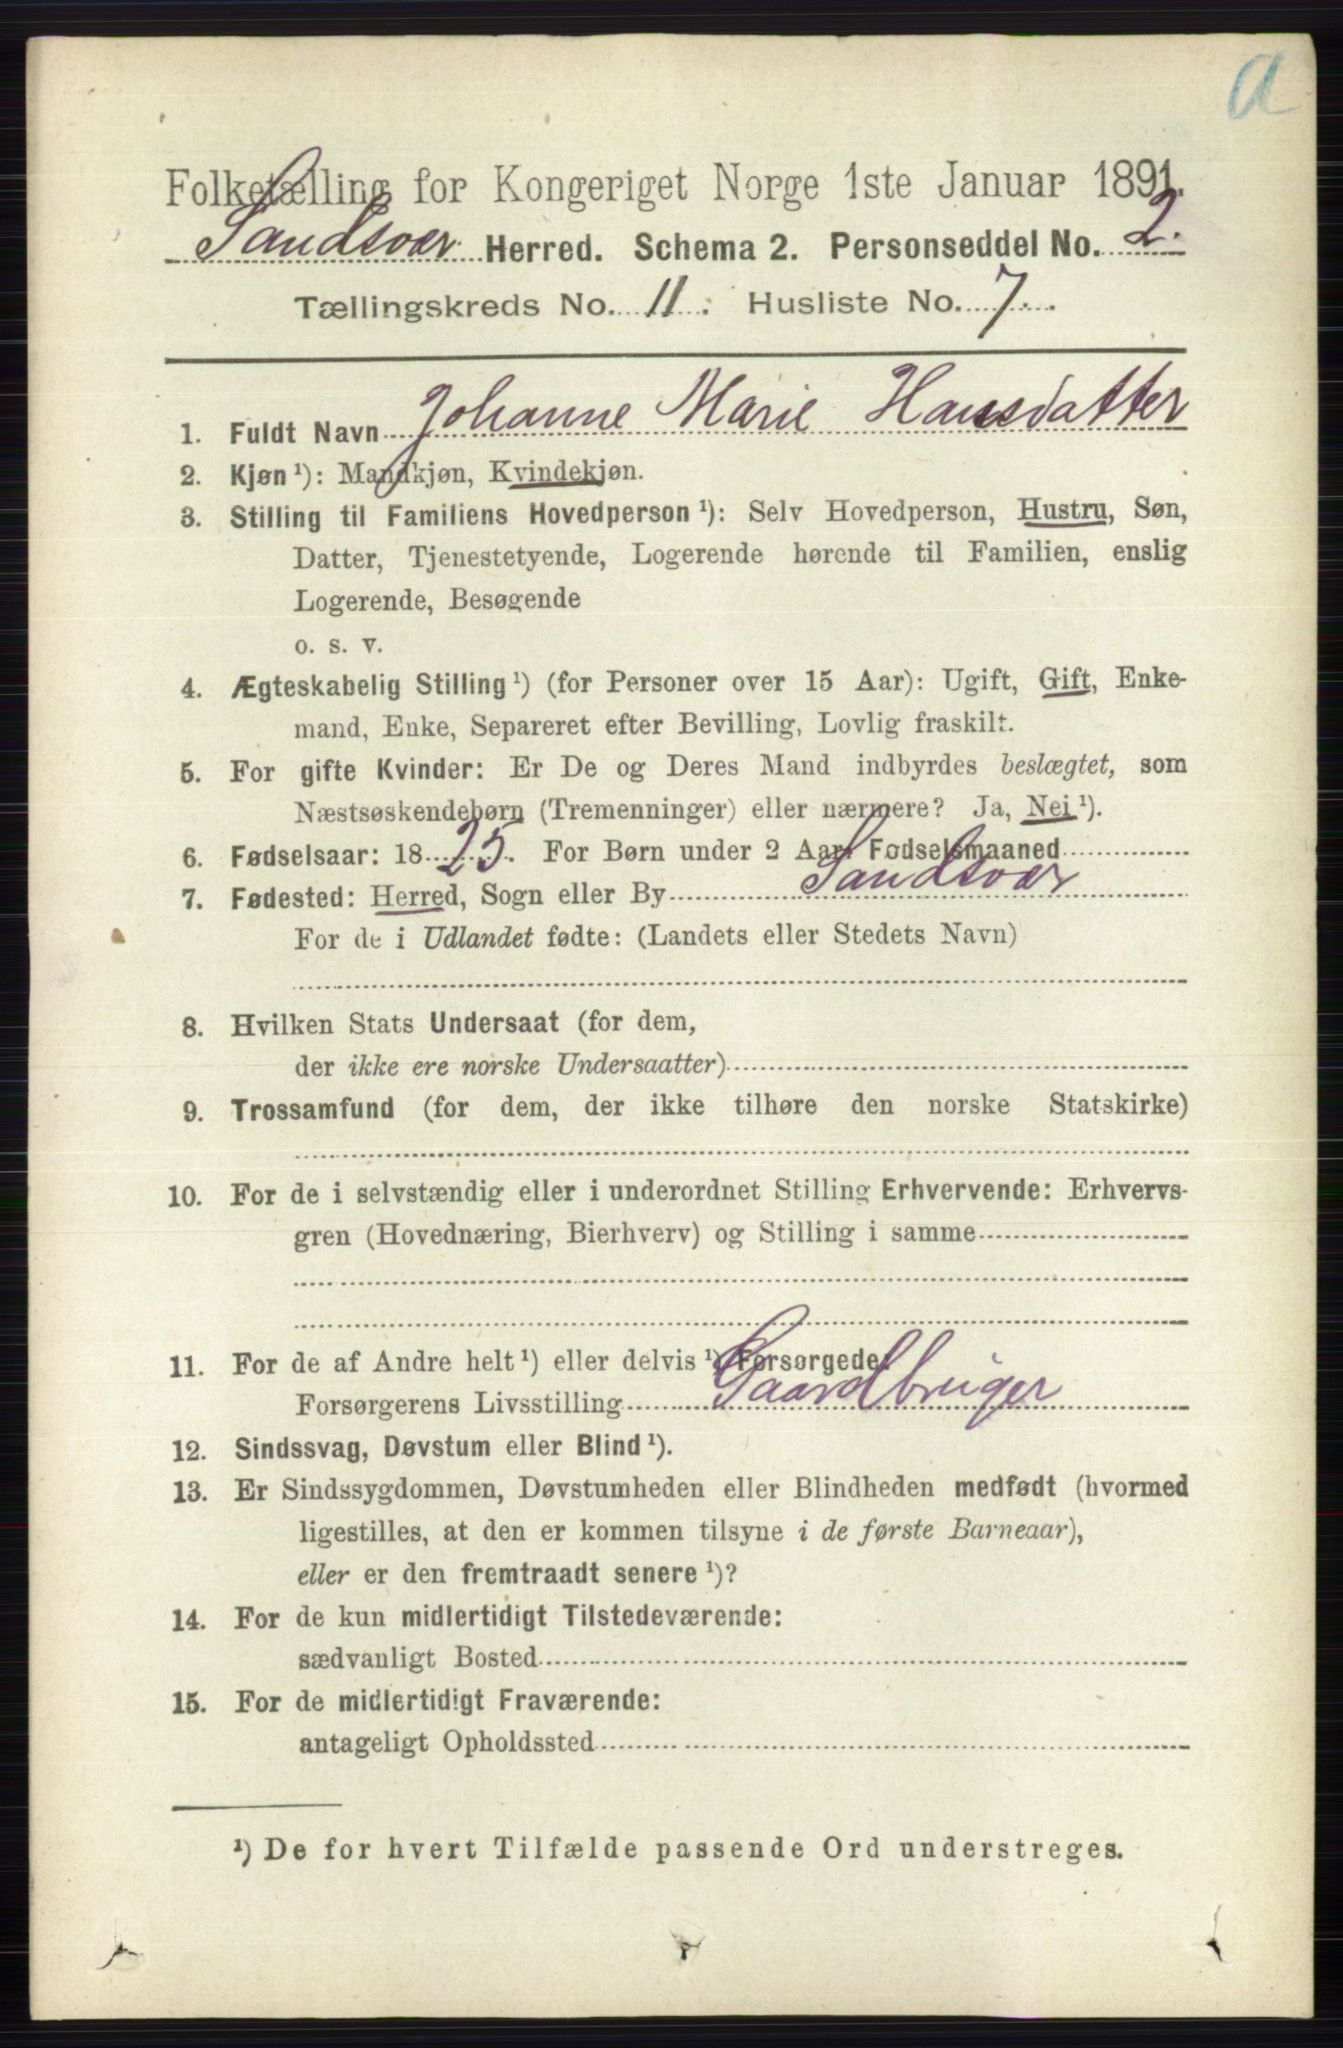 a
Folketælling for Kongeriget Norge 1ste Januar 1891.
Sandsvær Herred. Schema 2. Personseddel No. 2.
Tællingskreds No. 11. Husliste No. 7.
1. Fuldt Navn Johanne Marie Hansdatter
2. Kjøn ¹): Mandkjøn, Kvindekjøn.
3. Stilling til Familiens Hovedperson ¹): Selv Hovedperson, Hustru, Søn,
Datter, Tjenestetyende, Logerende hørende til Familien, enslig
Logerende, Besøgende
o. s. v.
4. Ægteskabelig Stilling ¹) (for Personer over 15 Aar): Ugift, Gift, Enke-
mand, Enke, Separeret efter Bevilling, Lovlig fraskilt.
5. For gifte Kvinder: Er De og Deres Mand indbyrdes beslægtet, som
Næstsøskendebørn (Tremenninger) eller nærmere? Ja, Nei ¹).
6. Fødselsaar: 1825. For Børn under 2 Aar: Fødselsmaaned
7. Fødested: Herred, Sogn eller By Sandsvær
For de i Udlandet fødte: (Landets eller Stedets Navn)
8. Hvilken Stats Undersaat (for dem,
der ikke ere norske Undersaatter)
9. Trossamfund (for dem, der ikke tilhøre den norske Statskirke)
10. For de i selvstændig eller i underordnet Stilling Erhvervende: Erhvervs-
gren (Hovednæring, Bierhverv) og Stilling i samme
11. For de af Andre helt ¹) eller delvis ¹) Forsørgede:
Forsørgerens Livsstilling Gaardbruger
12. Sindssvag, Døvstum eller Blind ¹).
13. Er Sindssygdommen, Døvstumheden eller Blindheden medfødt (hvormed
ligestilles, at den er kommen tilsyne i de første Barneaar),
eller er den fremtraadt senere ¹)?
14. For de kun midlertidigt Tilstedeværende:
sædvanligt Bosted
15. For de midlertidigt Fraværende:
antageligt Opholdssted
¹) De for hvert Tilfælde passende Ord understreges.